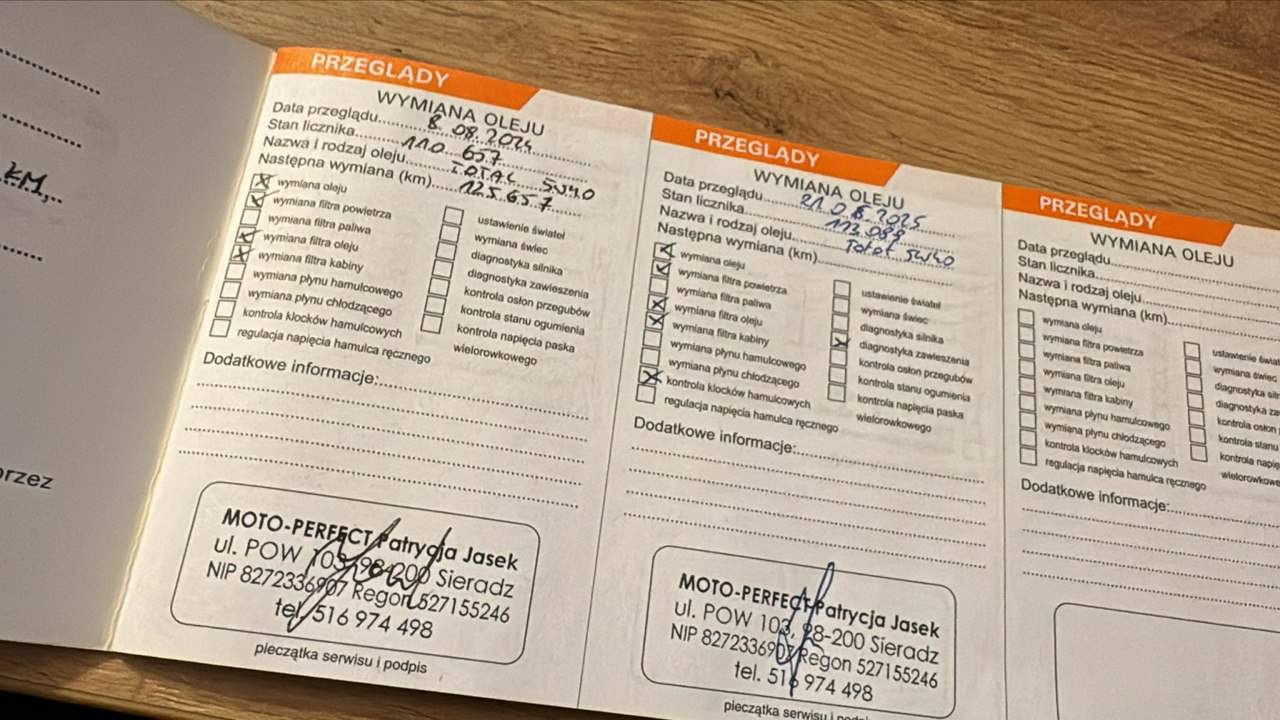 KM
orzez
PRZEGLĄDY
WYMIANA OLEJU
Data przeglądu 8.08.2024
Stan licznika 110 657
Nazwa i rodzaj oleju TOTAL 5W40
Następna wymiana (km) 125 657
wymiana oleju
wymiana filtra powietrza
wymiana filtra paliwa
wymiana filtra oleju
wymiana filtra kabiny
wymiana płynu hamulcowego
wymiana płynu chłodzącego
kontrola klocków hamulcowych
regulacja napięcia hamulca ręcznego
ustawienie świateł
wymiana świec
diagnostyka silnika
diagnostyka zawieszenia
kontrola osłon przegubów
kontrola stanu ogumienia
kontrola napięcia paska
wielorowkowego
Dodatkowe informacje:
MOTO-PERFECT Patrycja Jasek
ul. POW 103, 98-200 Sieradz
NIP 8272336907 Regon 527155246
tel. 516 974 498
pieczątka serwisu i podpis
PRZEGLĄDY
WYMIANA OLEJU
Data przeglądu 21 08 2025
Stan licznika 113 089
Nazwa i rodzaj oleju Total 5W40
Następna wymiana (km)
wymiana oleju
wymiana filtra powietrza
wymiana filtra paliwa
wymiana filtra oleju
wymiana filtra kabiny
wymiana płynu hamulcowego
wymiana płynu chłodzącego
kontrola klocków hamulcowych
regulacja napięcia hamulca ręcznego
ustawienie świateł
wymiana świec
diagnostyka silnika
diagnostyka zawieszenia
kontrola osłon przegubów
kontrola stanu ogumienia
kontrola napięcia paska
wielorowkowego
Dodatkowe informacje:
MOTO-PERFECT Patrycja Jasek
ul. POW 103, 98-200 Sieradz
NIP 8272336907 Regon 527155246
tel. 516 974 498
pieczątka serwisu i podpis
PRZEGLĄDY
WYMIANA OLEJU
Data przeglądu
Stan licznika
Nazwa i rodzaj oleju
Następna wymiana (km)
wymiana oleju
wymiana filtra powietrza
wymiana filtra paliwa
wymiana filtra oleju
wymiana filtra kabiny
wymiana płynu hamulcowego
wymiana płynu chłodzącego
kontrola klocków hamulcowych
regulacja napięcia hamulca ręcznego
ustawienie świateł
wymiana świec
diagnostyka sil
diagnostyka za
kontrola osłon
kontrola stanu
kontrola napię
wielorowkowe
Dodatkowe informacje: